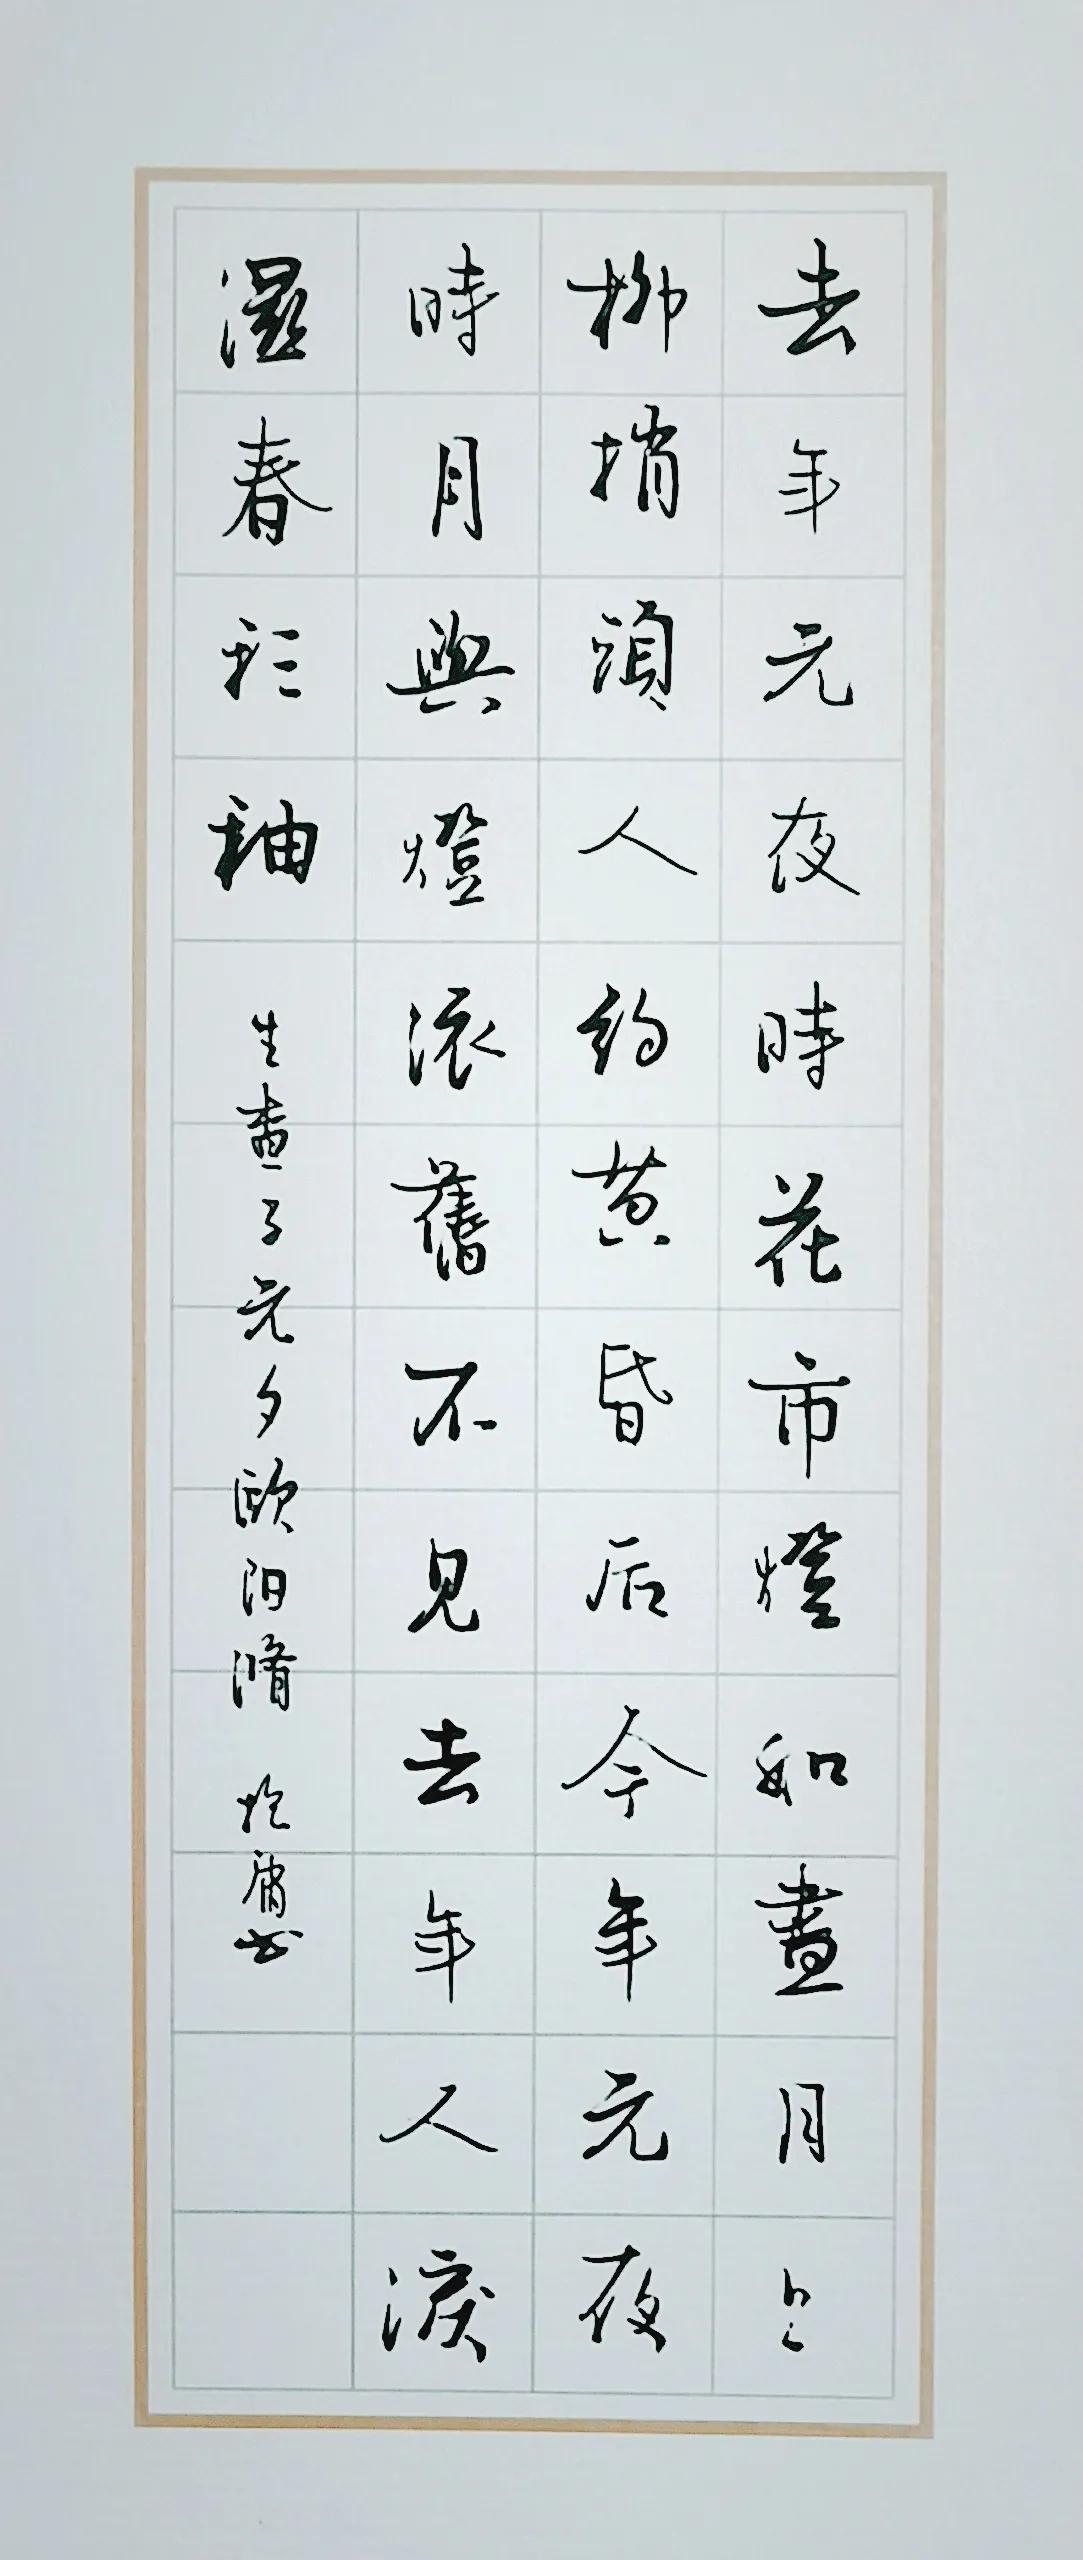 去年元夜時花市燈如晝月上
柳梢頭人約黄昏后今年元夜
時月與燈依舊不見去年人淚
濕春衫袖 生查子元夕歐阳脩 书